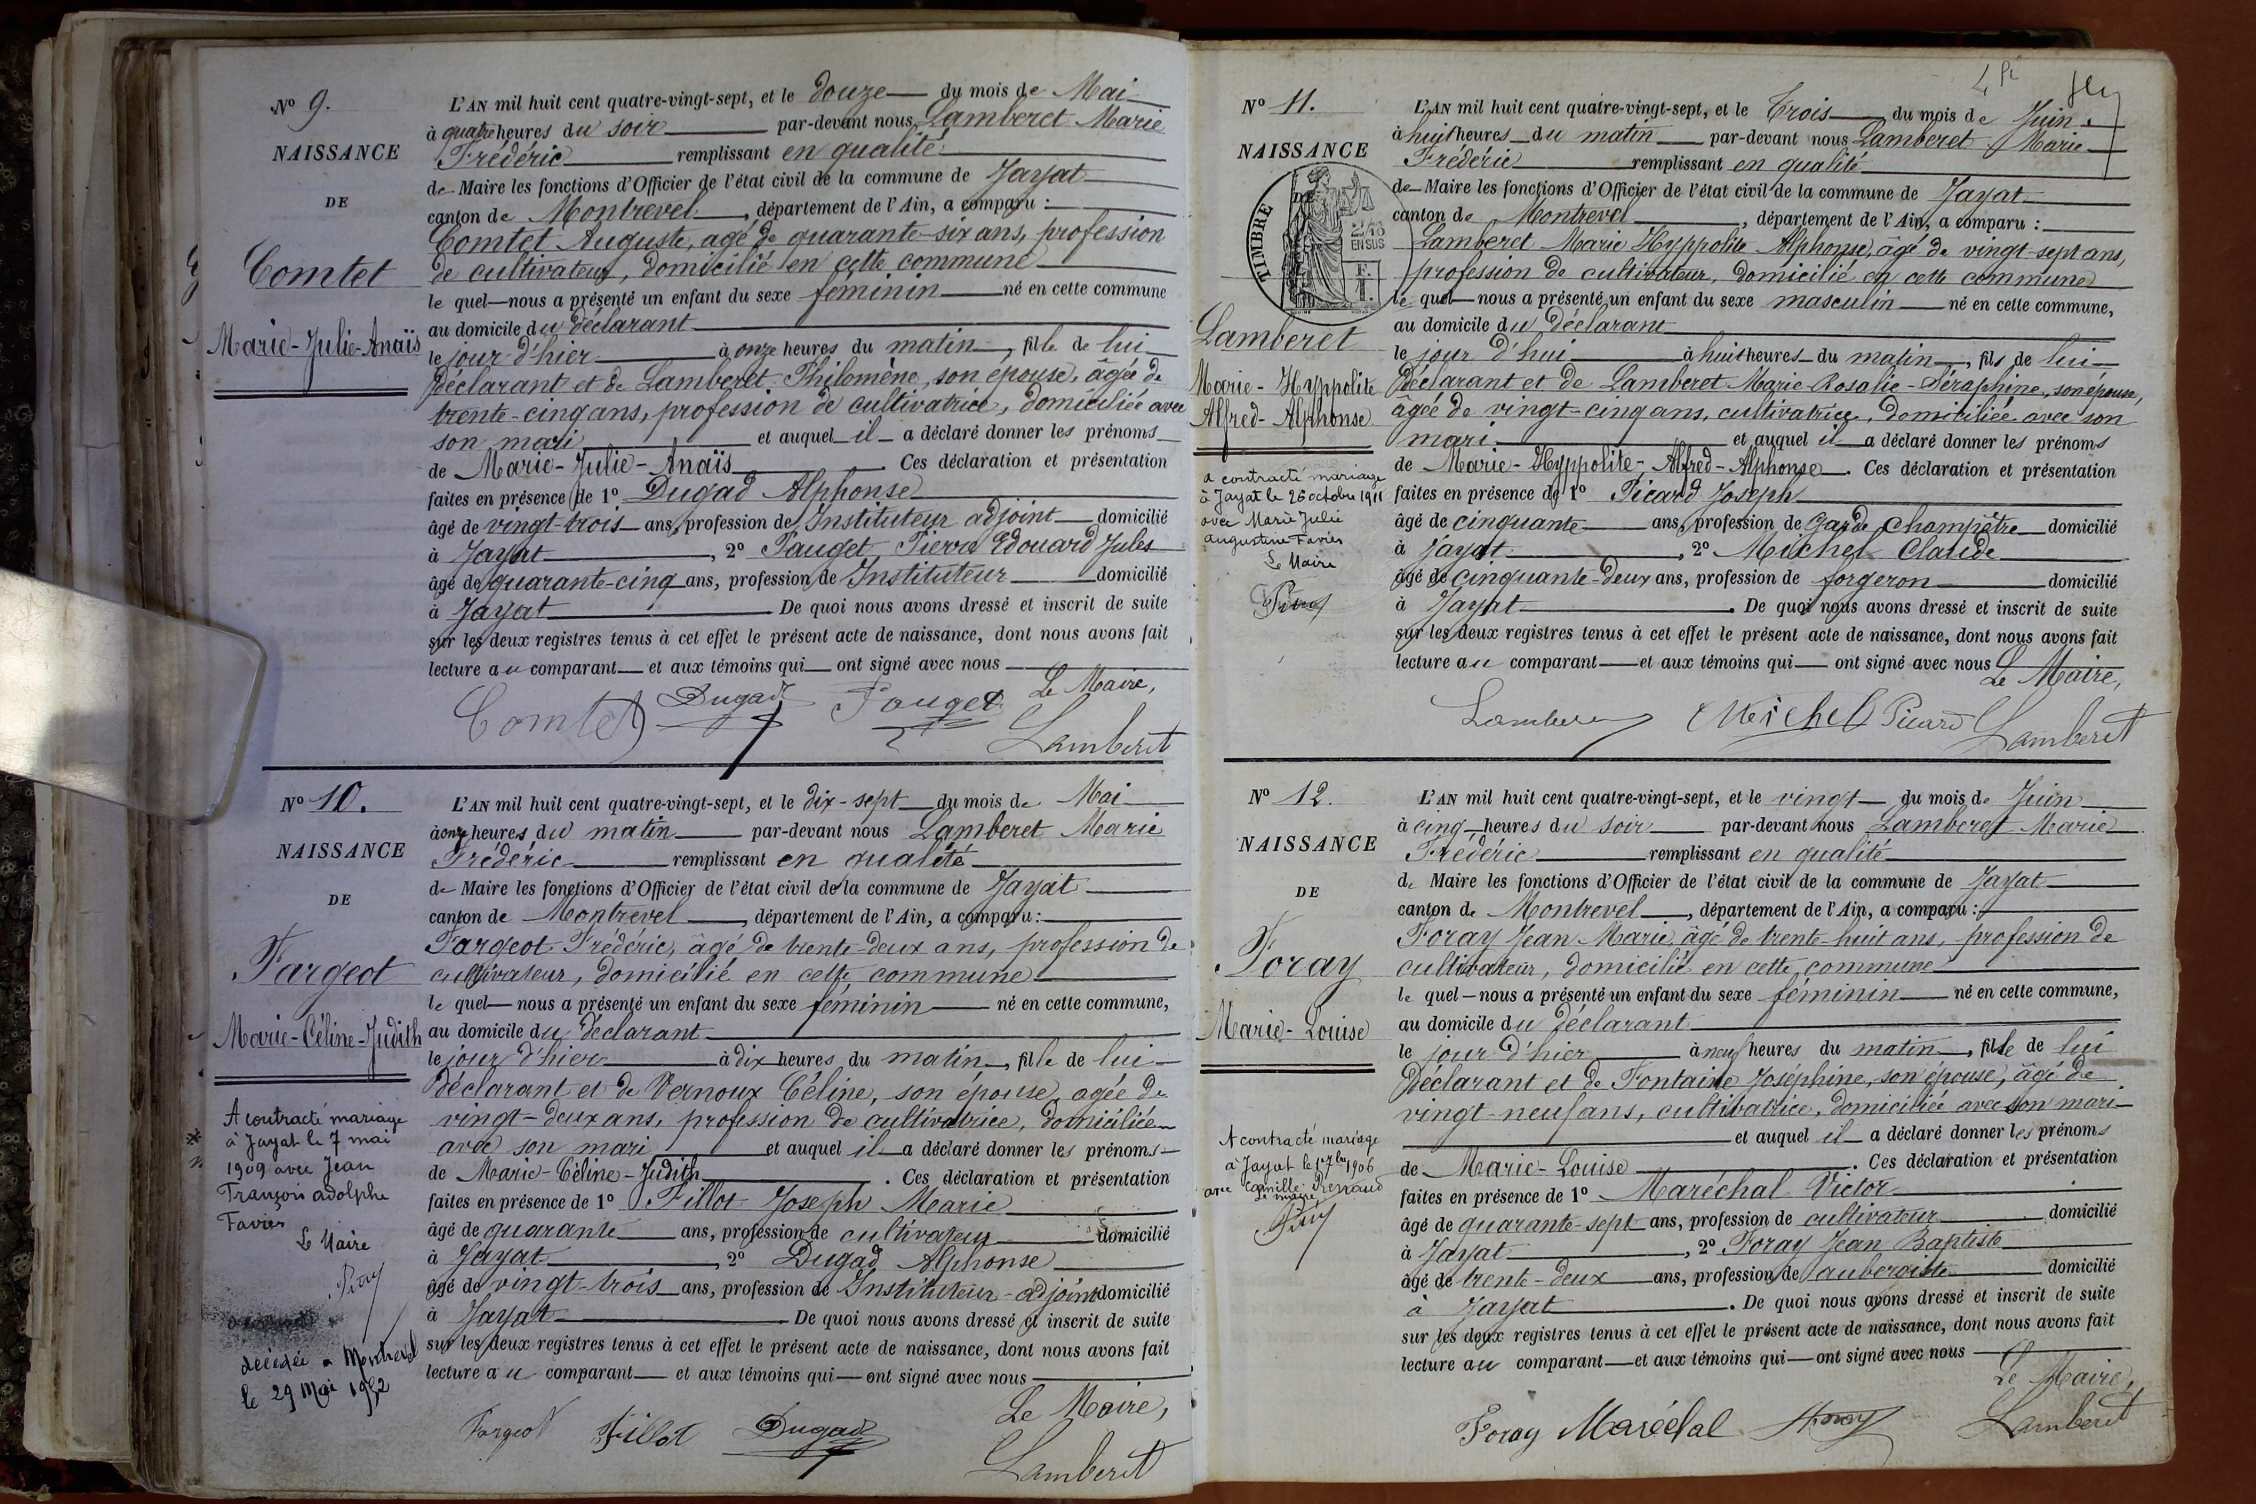 N° 9.
NAISSANCE
DE
Comtet
Marie-Julie-Anaïs
L'AN mil huit cent quatre-vingt-sept, et le douze du mois de Mai
à quatre heures du soir par-devant nous Lamberet Marie
Frédéric remplissant en qualité
de Maire les fonctions d'Officier de l'état civil de la commune de Jayat
canton de Montrevel, département de l'Ain, a comparu :
Comtet Auguste, agé de quarante-six ans, profession
de cultivateur, domicilié en cette commune
le quel nous a présenté un enfant du sexe féminin né en cette commune
au domicile du déclarant
le jour d'hier à onze heures du matin, fille de lui
déclarant et de Lamberet Philomène, son épouse, âgée de
trente-cinq ans, profession de cultivatrice, domiciliée avec
son mari et auquel il a déclaré donner les prénoms
de Marie-Julie-Anaïs. Ces déclaration et présentation
faites en présence de 1° Dugad Alphonse
âgé de vingt-trois ans, profession de Instituteur adjoint domicilié
à Jayat, 2° Pauget Pierre Edouard Jules
âgé de quarante-cinq ans, profession de Instituteur domicilié
à Jayat De quoi nous avons dressé et inscrit de suite
sur les deux registres tenus à cet effet le présent acte de naissance, dont nous avons fait
lecture au comparant et aux témoins qui ont signé avec nous
Le Maire,
Comtet Dugad Pauget
Lamberet
N° 10.
NAISSANCE
DE
Fargeot
Marie-Céline-Judith
A contracté mariage
à Jayat le 7 mai
1909 avec Jean
François adolphe
Favier
Le Maire
décédée a Montrevel
le 29 Mai 1972
L'AN mil huit cent quatre-vingt-sept, et le dix-sept du mois de Mai
à onze heures du matin par-devant nous Lamberet Marie
Frédéric remplissant en qualité
de Maire les fonctions d'Officier de l'état civil de la commune de Jayat
canton de Montrevel, département de l'Ain, a comparu :
Fargeot Frédéric, âgé de trente-deux ans, profession de
cultivateur, domicilié en cette commune
le quel nous a présenté un enfant du sexe féminin né en cette commune,
au domicile du déclarant
le jour d'hier à dix heures du matin, fille de lui
déclarant et de Vernoux Céline, son épouse, agée de
vingt-deux ans, profession de cultivatrice, domiciliée
avec son mari et auquel il a déclaré donner les prénoms
de Marie-Céline-Judith. Ces déclaration et présentation
faites en présence de 1° Fillot Joseph Marie
âgé de quarante ans, profession de cultivateur domicilié
à Jayat, 2° Dugad Alphonse
âgé de vingt-trois ans, profession de Instituteur-adjoint domicilié
à Jayat De quoi nous avons dressé et inscrit de suite
sur les deux registres tenus à cet effet le présent acte de naissance, dont nous avons fait
lecture au comparant et aux témoins qui ont signé avec nous
Le Maire,
Fargeot Fillot Dugad
Lamberet
N° 11.
NAISSANCE
DE
TIMBRE
2/10
EN SUS
F.
Lamberet
Marie-Hyppolite
Alfred-Alphonse
a contracté mariage
à Jayat le 26 octobre 1911
avec Marie Julie
augustine Favier
Le Maire
L'AN mil huit cent quatre-vingt-sept, et le Trois du mois de Juin
à huit heures du matin par-devant nous Lamberet Marie
Frédéric remplissant en qualité
de Maire les fonctions d'Officier de l'état civil de la commune de Jayat
canton de Montrevel, département de l'Ain, a comparu :
Lamberet Marie Hyppolite Alphonse, âgé de vingt-sept ans,
profession de cultivateur, domicilié en cette commune
le quel nous a présenté un enfant du sexe masculin né en cette commune,
au domicile du déclarant
le jour d'hui à huit heures du matin, fils de lui
déclarant et de Lamberet Marie-Rosalie-Séraphine, son épouse,
âgée de vingt-cinq ans, cultivatrice, domiciliée avec son
mari et auquel il a déclaré donner les prénoms
de Marie-Hyppolite-Alfred-Alphonse. Ces déclaration et présentation
faites en présence de 1° Picard Joseph
âgé de cinquante ans, profession de Garde champêtre domicilié
à Jayat, 2° Michel Claude
âgé de cinquante-deux ans, profession de forgeron domicilié
à Jayat. De quoi nous avons dressé et inscrit de suite
sur les deux registres tenus à cet effet le présent acte de naissance, dont nous avons fait
lecture au comparant et aux témoins qui ont signé avec nous
Le Maire,
Lamberet Michel Picard
Lamberet
N° 12.
NAISSANCE
DE
Foray
Marie-Louise
A contracté mariage
à Jayat le 1er 7bre 1906
avec Camille Renaud
Le maire
L'AN mil huit cent quatre-vingt-sept, et le vingt du mois de Juin
à cinq heures du soir par-devant nous Lamberet Marie
Frédéric remplissant en qualité
de Maire les fonctions d'Officier de l'état civil de la commune de Jayat
canton de Montrevel, département de l'Ain, a comparu :
Foray Jean Marie, âgé de trente-huit ans, profession de
cultivateur, domicilié en cette commune
le quel nous a présenté un enfant du sexe féminin né en cette commune,
au domicile du déclarant
le jour d'hier à neuf heures du matin, fille de lui
déclarant et de Fontaine Joséphine, son épouse, âgé de
vingt-neuf ans, cultivatrice, domiciliée avec son mari
et auquel il a déclaré donner les prénoms
de Marie-Louise. Ces déclaration et présentation
faites en présence de 1° Maréchal Victor
âgé de quarante-sept ans, profession de cultivateur domicilié
à Jayat, 2° Foray Jean Baptiste
âgé de trente-deux ans, profession de aubergiste domicilié
à Jayat. De quoi nous avons dressé et inscrit de suite
sur les deux registres tenus à cet effet le présent acte de naissance, dont nous avons fait
lecture au comparant et aux témoins qui ont signé avec nous
Le Maire,
Foray Maréchal Foray
Lamberet